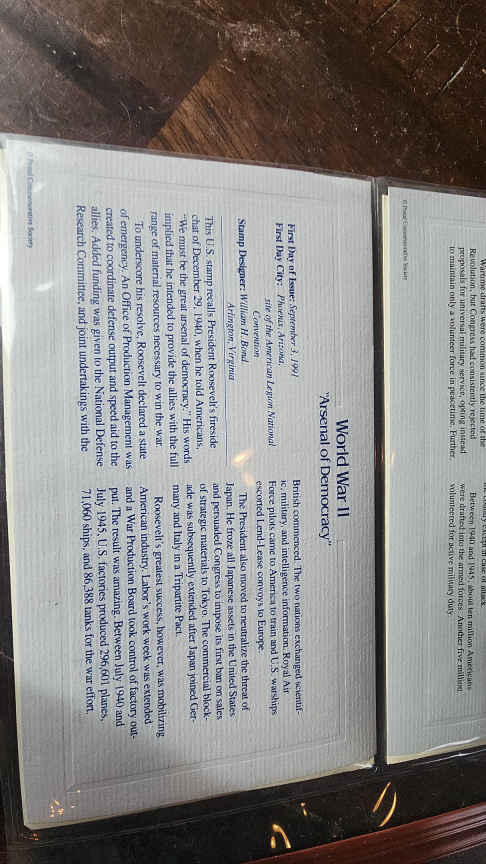 Wartime drafts were common since the time of the
Revolution, but Congress had consistently rejected
proposals for universal military service, opting instead
to maintain only a volunteer force in peacetime. Further,
the country except in case of attack.
Between 1940 and 1945, about ten million Americans
were drafted into the armed forces. Another five million
volunteered for active military duty.
© Postal Commemorative Society
World War II
"Arsenal of Democracy"
First Day of Issue: September 3, 1991
First Day City: Phoenix, Arizona,
site of the American Legion National
Convention
Stamp Designer: William H. Bond,
Arlington, Virginia
This U.S. stamp recalls President Roosevelt's fireside
chat of December 29, 1940, when he told Americans,
"We must be the great arsenal of democracy." His words
implied that he intended to provide the allies with the full
range of material resources necessary to win the war.
To underscore his resolve, Roosevelt declared a state
of emergency. An Office of Production Management was
created to coordinate defense output and speed aid to the
allies. Added funding was given to the National Defense
Research Committee, and joint undertakings with the
British commenced. The two nations exchanged scientif-
ic, military, and intelligence information. Royal Air
Force pilots came to America to train and U.S. warships
escorted Lend-Lease convoys to Europe.
The President also moved to neutralize the threat of
Japan. He froze all Japanese assets in the United States
and persuaded Congress to impose its first ban on sales
of strategic materials to Tokyo. The commercial block-
ade was subsequently extended after Japan joined Ger-
many and Italy in a Tripartite Pact.
Roosevelt's greatest success, however, was mobilizing
American industry. Labor's work week was extended
and a War Production Board took control of factory out-
put. The result was amazing. Between July 1940 and
July 1945, U.S. factories produced 296,601 planes,
71,060 ships, and 86,388 tanks for the war effort.
© Postal Commemorative Society